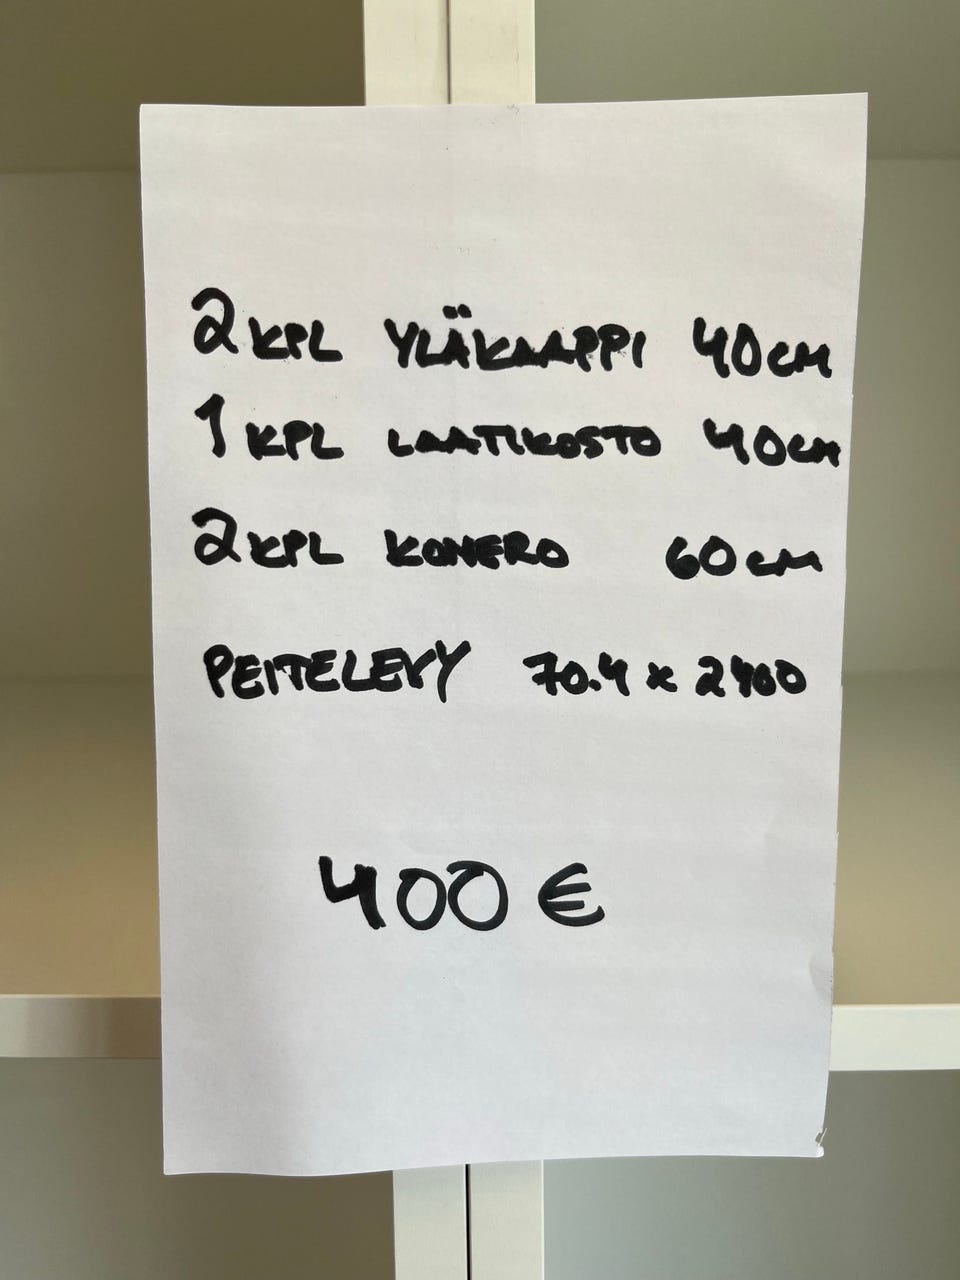 2 KPL YLÄKAAPPI 40CM
1 KPL LAATIKOSTO 40CM
2 KPL KOMERO 60CM
PEITELEVY 70.4 x 2400
400 €